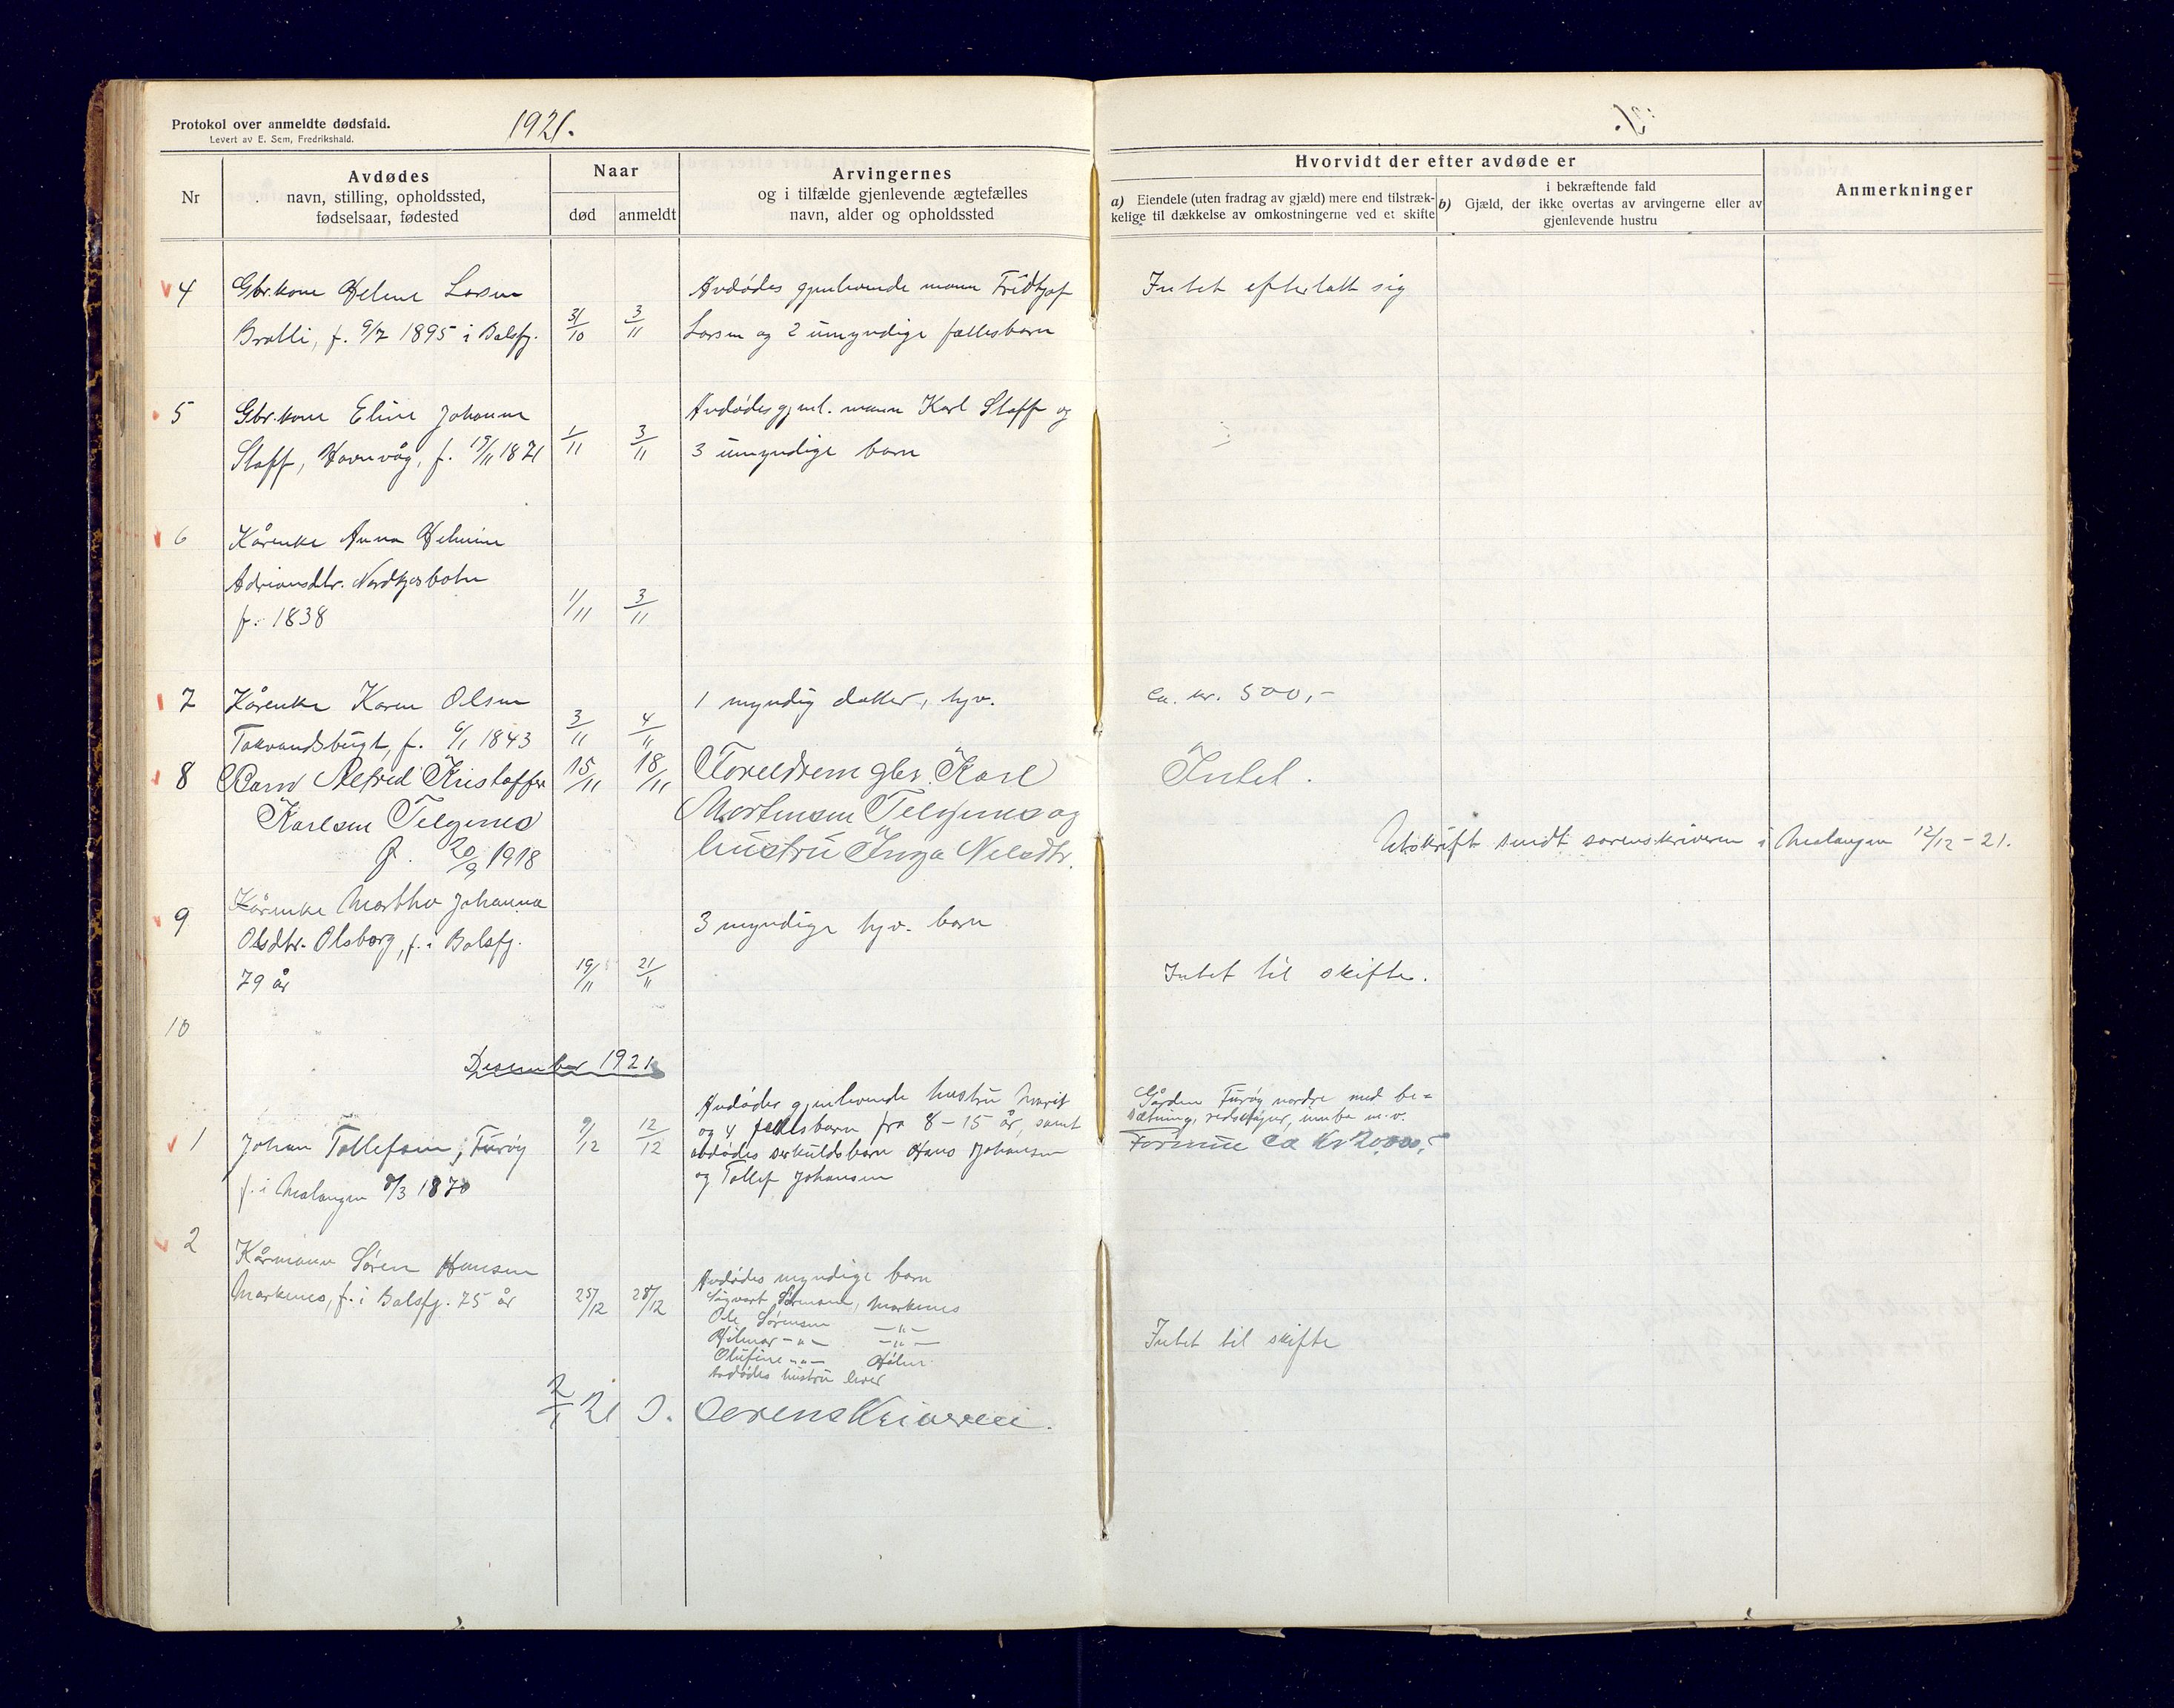 Protokol over anmeldte dødsfald.
Levert av E. Sem, Fredrikshald.
1921.
Nr
Avdødes
navn, stilling, opholdssted,
fødselsaar, fødested
Naar
død
anmeldt
Arvingernes
og i tilfælde gjenlevende ægtefælles
navn, alder og opholdssted
Hvorvidt der efter avdøde er
a) Eiendele (uten fradrag av gjæld) mere end tilstræk-
kelige til dækkelse av omkostningerne ved et skifte
i bekræftende fald
b) Gjæld, der ikke overtas av arvingerne eller av
gjenlevende hustru
Anmerkninger
4
Gbr.kone Helene Larsen
Bratli, f. 9/7 1895 i Balsfj.
31/10
3/11
Avdødes gjenlevende mann Fridtjof
Larsen og 2 umyndige fællesbarn
Intet efterlatt sig
5
Gbr.kone Eline Johanne
Staff, Havnvåg, f. 19/11 1871
1/11
3/11
Avdødes gjenl. mann Karl Staff og
3 umyndige barn
6
Kårenke Anna Helmine
Adriansdtr. Nordkjosbotn
f. 1838
1/11
3/11
7
Kårenke Karen Olsen
Takvandsbugt, f. 6/1 1843
3/11
4/11
1 myndig datter, hjv.
ca. kr. 500,-
8
Barn Alfred Kristoffer
Karlsen
f. 20/9 1918
15/11
18/11
Foreldrene gbr. Karl
Mortensen og
hustru Inga Nelsdtr.
Intet.
Utskrift sendt sorenskriveren i Malangen 12/12-21.
9
Kårenke Martha Johanna
Olsdtr. Olsborg, f. i Balsfj.
79 år
19/11
21/11
3 myndige hjv. barn
Intet til skifte.
10
Desember 1921
1
Johan Tollefsen, Furøy
f. i Malangen 8/3 1870
9/12
12/12
Avdødes gjenlevende hustru Marit
og 4 fellesbarn fra 8-15 år, samt
avdødes særkuldsbarn Hans Johansen
og Tollef Johansen
Gården Furøy nordre med be=
sætning, redskaper, innbo m.v.
Formue ca Kr 20,000,-
2
Kårmann Søren Hansen
Markenes, f. i Balsfj. 75 år
25/12
28/12
Avdødes myndige barn
Sigvart Sørensen, Markenes
Ole Sørensen -"-
Hilmar -"- -"-
Olufine -"-
Avdødes hustru lever
Intet til skifte
2/1 21
Sorenskriveren.